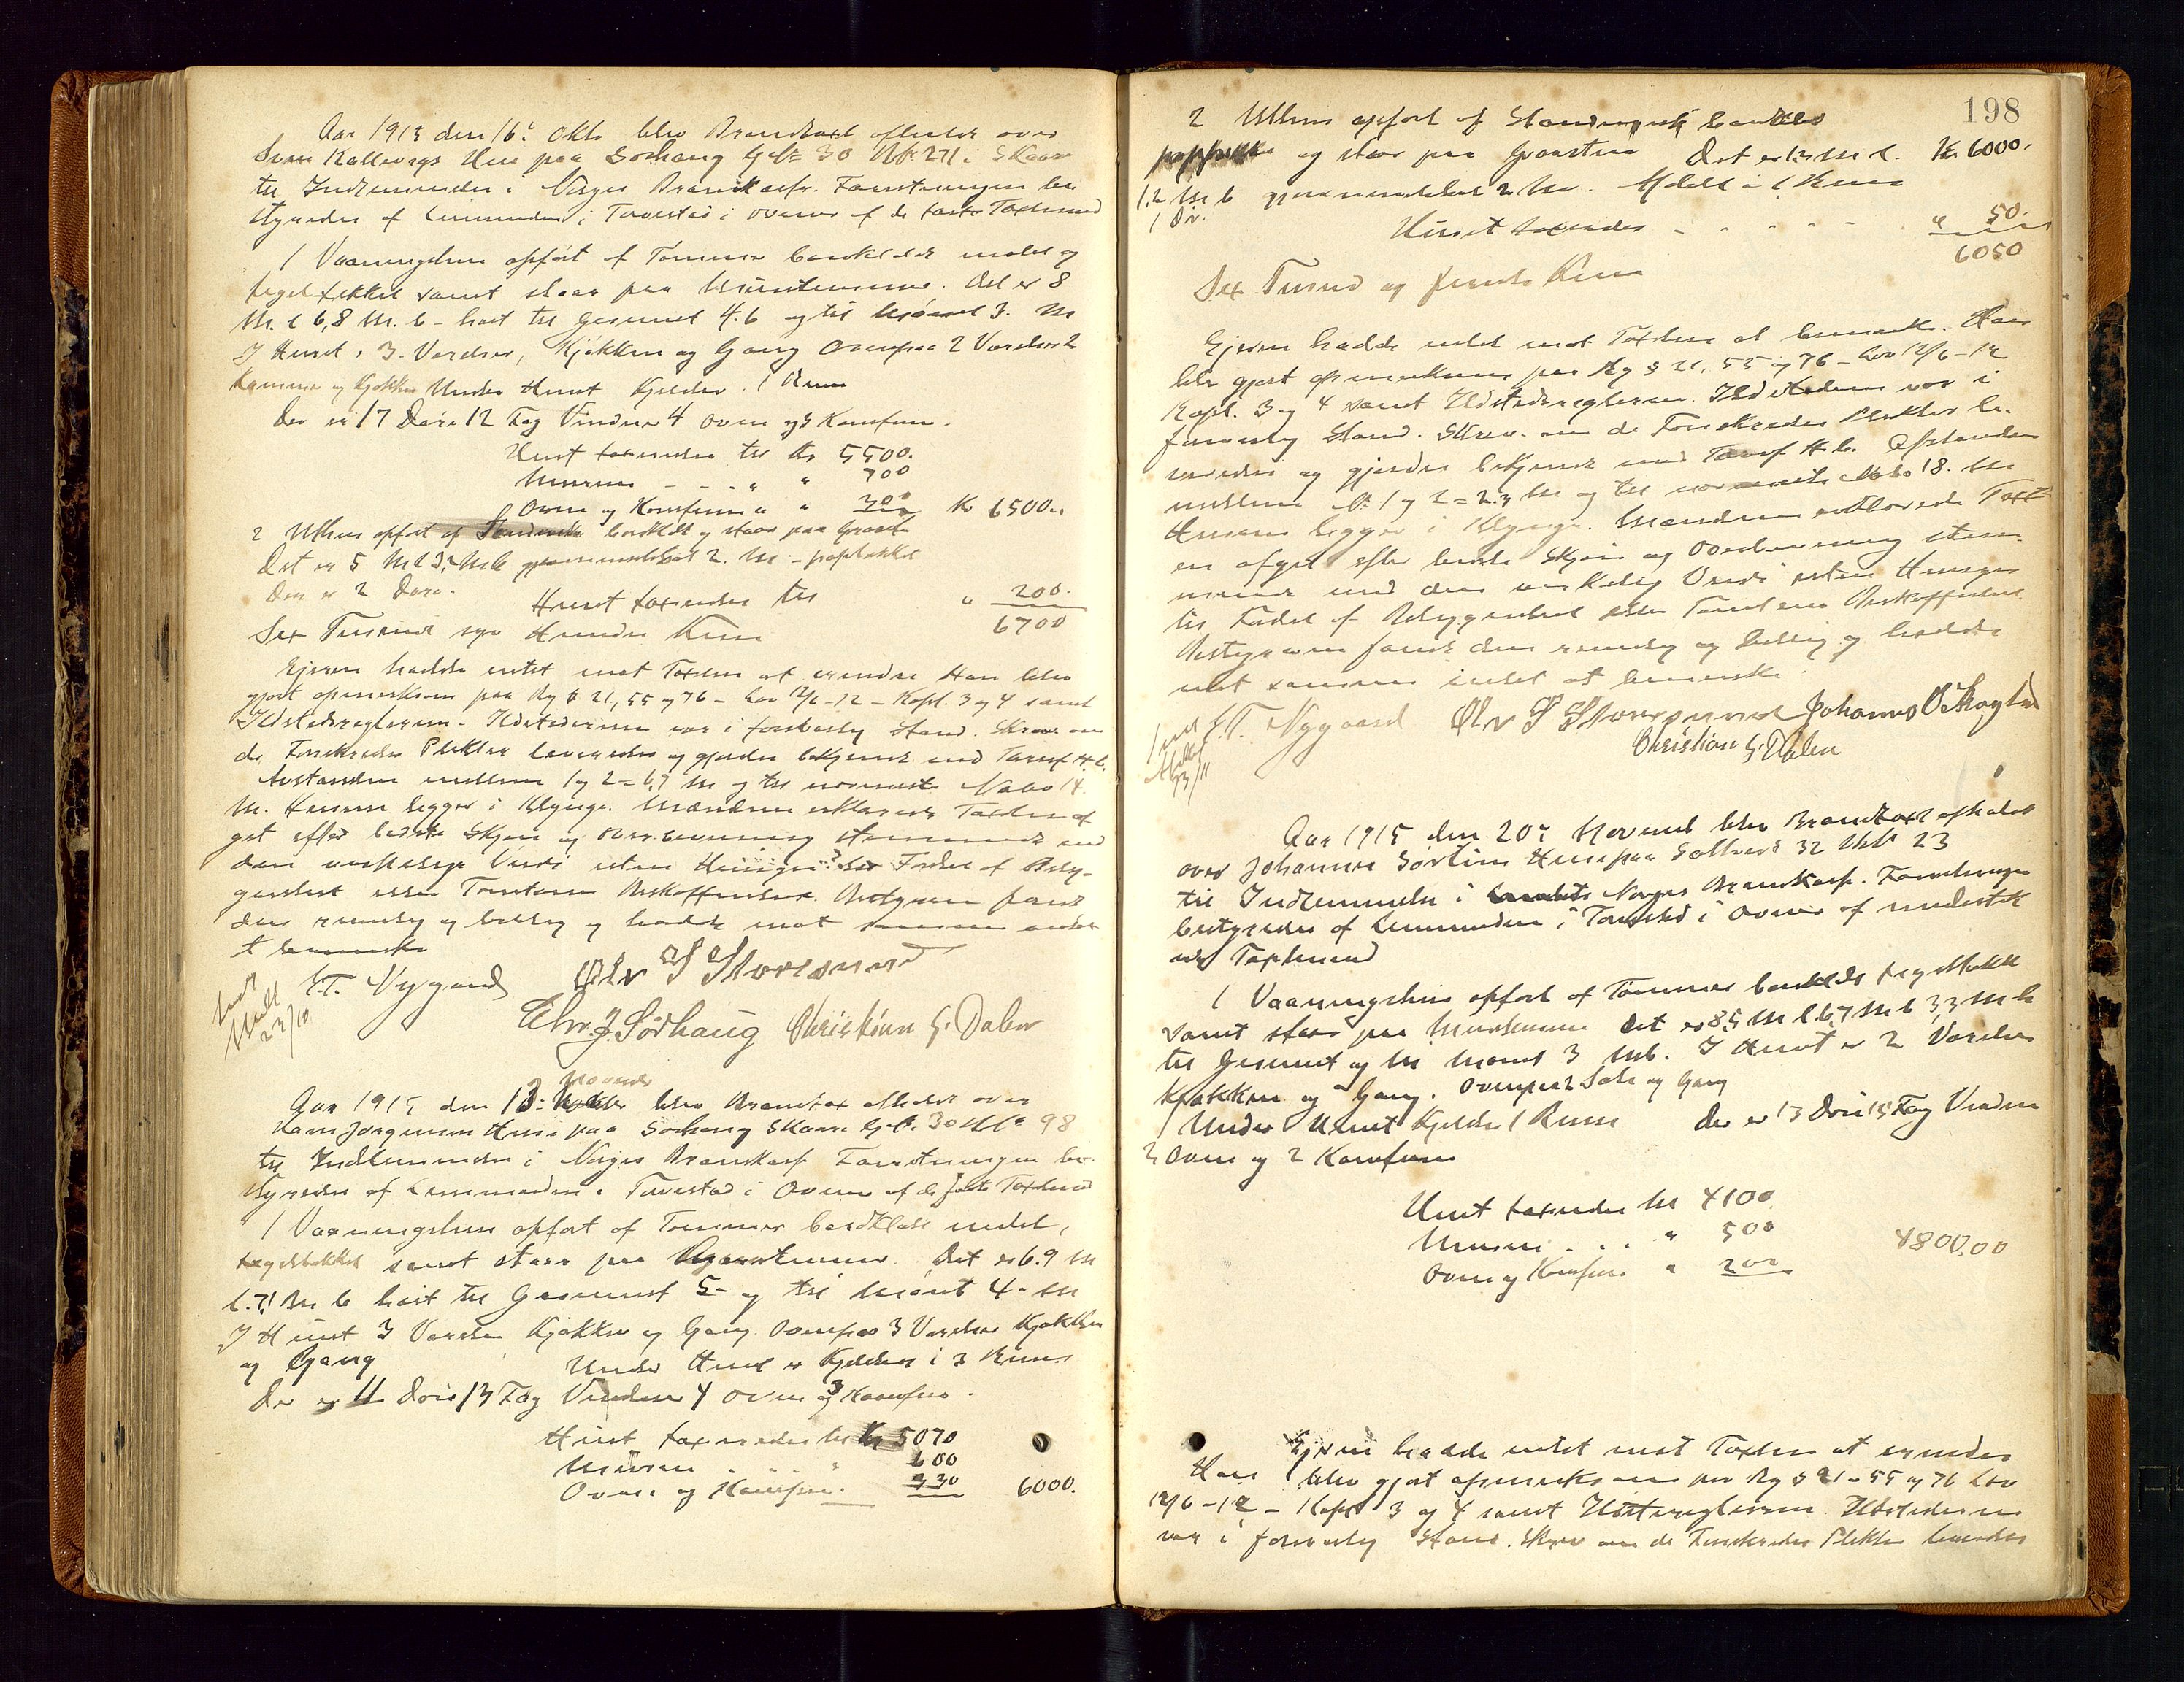 Aar 1915 den 16de Okto blev Brandtaxt afholdt over
Svein Kallevags Hus paa Sørhaug Gbn 30 Nb. 271 i Skaare
til Indlemmelse i Norges Brandkasse. Forretningen be
styredes af Lensmanden i Torvestad i overvær af de faste Taxtmænd
1 Vaaningshus opført af Tømmer bordklædt malet og
tegltækket samt staar paa Murstensmur. Det er 8
M. l 6,8 M. b - høit til Gesimset 4.6 og til Mønet 3. M
I Huset 3 Værelser, Kjøkken og Gang Ovenpaa 2 Værelser 2
Kammer og Kjøkken Under Huset Kjelder 1 Rum
Der er 17 Døre 12 Fag Vinduer 4 Ovne og 3 Komfur.
Huset taxeredes til Kr 5500.
Muren - - - " " 700
Ovne og Komfurer " " 300 Kr 6500..
2 Uthus opført af bordklædt og staar paa Graasten
Det er 5 M l 3,2 M b gjennemsnitshøit 2. M - paptækket
Der er 2 Døre. Huset taxeredes til " 200.
Sex Tusinde syv Hundre Kroner 6700
Ejeren hadde intet mot Taxten at erindre Han blev
gjort opmerksom paa Rg § 21, 55 og 76 - Lov 12/6-12 - Kapl. 3 og 4 samt
Ildstedsreglerne. Ildstederne var i forsvarlig Stand. Skrev om
de Forsikredes Plikter leveredes og gjordes bekjendt med Tarif H. b.
Avstanden mellem 1 og 2 = 6,7 M og til nærmeste Nabo 14
M. Husene ligger i Klynge. Mændene erklærede Taxten af
git efter bedste Skjøn og Overbevisning stemmende med
den virkelige Værdi uten Hensyn til Fordel af Beby-
gelsens eller Tomtens Beskaffenhed. Bestyreren fandt
den rimelig og billig og hadde mot samme intet
at bemerke
E.T. Nygaard Olav S Storesund
Chr. J. Sørhaug Christian G. Dalen
23/10
Novemb
Aar 1915 den 13: blev Brandtax afholdt over
Hans Jørgensen Hus paa Sørhaug Skaare G.b. 30 Nb 98
til Indlemmelse i Norges Brandkasse Forretningen be-
styredes af Lensmanden i Torvestad i Overvær af de faste Taxtmænd
1 Vaaningshus opført af Tømmer bordklædt malet,
tegltækket samt staar paa Graastensmur. Det er 6.9 M
l. 7,1 M b høit til Gesimset 5- og til Mønet 4- M
I Huset 3 Værelser Kjøkken og Gang Ovenpaa 3 Værelser Kjøkken
og Gang Under Huset er Kjelder i 3 Rum
Der er 11 Døre 13 Fag Vinduer 4 Ovne og 3 Komfur.
Huset taxeredes til Kr 5070
Muren . . . 600
Ovne og Komfur. 330 6000.
198
2 Uthus opført af Stenderverk bordklædt
og staar paa Graasten Det er 12 M l. Kr. 6000.
1.2 M b gjennemsnitshøit 2 M. Afdelt i 1 Rum
1 Dør.
Huset taxeredes - - - - - " 50.
6050
Sex Tusind og femti Kroner
Ejeren hadde intet mot Taxten at bemerke. Han
blev gjort opmerksom paa Rg § 21, 55 og 76 - Lov 12/6-12
Kapl. 3 og 4 samt Ildstedsreglerne. Ildstederne var i
forsvarlig Stand. Skrev om de Forsikredes Plikter le-
veredes og gjordes bekjendt med Tarif H b. Afstanden
mellem No 1 og 2 = 2.3 M og til nærmeste Nabo 18. M
Husene ligger i Klynge. Mændene erklærede Taxt
en afgit efter bedste Skjøn og Overbevisning stem-
mende med den virkelig Værdi uten Hensyn
til Fordel af Bebyggelsens eller Tomtens Beskaffenhed
Bestyreren fandt den rimelig og billig og hadde
mot samme intet at bemerke
E.T. Nygaard Olav S Storesund Johannes O Skogland
Christian G. Dalen
23/11
Aar 1915 den 20de Novemb blev Brandtaxt afholdt
over Johannes Sørlins Hus paa Solbert 32 Nb 23
til Indlemmelse i Norges Brandkasse. Forretningen
bestyredes af Lensmanden i Torvestad i Overvær af undertegn
ede Taxtmænd
1 Vaaningshus opført af Tømmer bordklædt tegltække
samt staar paa Murstensmur Det er 8,5 M l 6,7 M b 3,3 M h
til Gesimset og til Mønet 3 M. I Huset er 2 Værelser
Kjøkken og Gang. Ovenpaa 2 Sale og Gang
Under Huset Kjelder 1 Rum Der er 13 Døre 15 Fag Vinduer
2 Ovne og 2 Komfurer
Huset taxeredes til 4100
Muren . . . " 500
Ovne og Komfur " 200 4800,00
Ejeren hadde intet mot Taxten at erindre
Han blev gjort opmerksom paa Rg § 21 - 55 og 76 Lov
12/6-12 - Kapl 3 og 4 samt Ildstedsreglerne. Ildstederne
var i forsvarlig Stand. Skrev om de Forsikredes Plikter leveredes